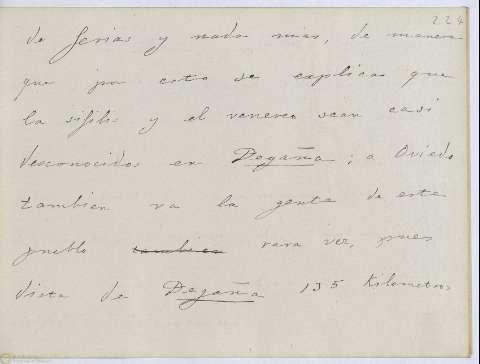 224
de ferias y nada mas, de manera
que por esto se explica que
la sifilis y el venereo sean casi
desconocidos en Degaña; a Oviedo
tambien va la gente de este
pueblo tambien rara vez, pues
dista de Degaña 135 Kilometros